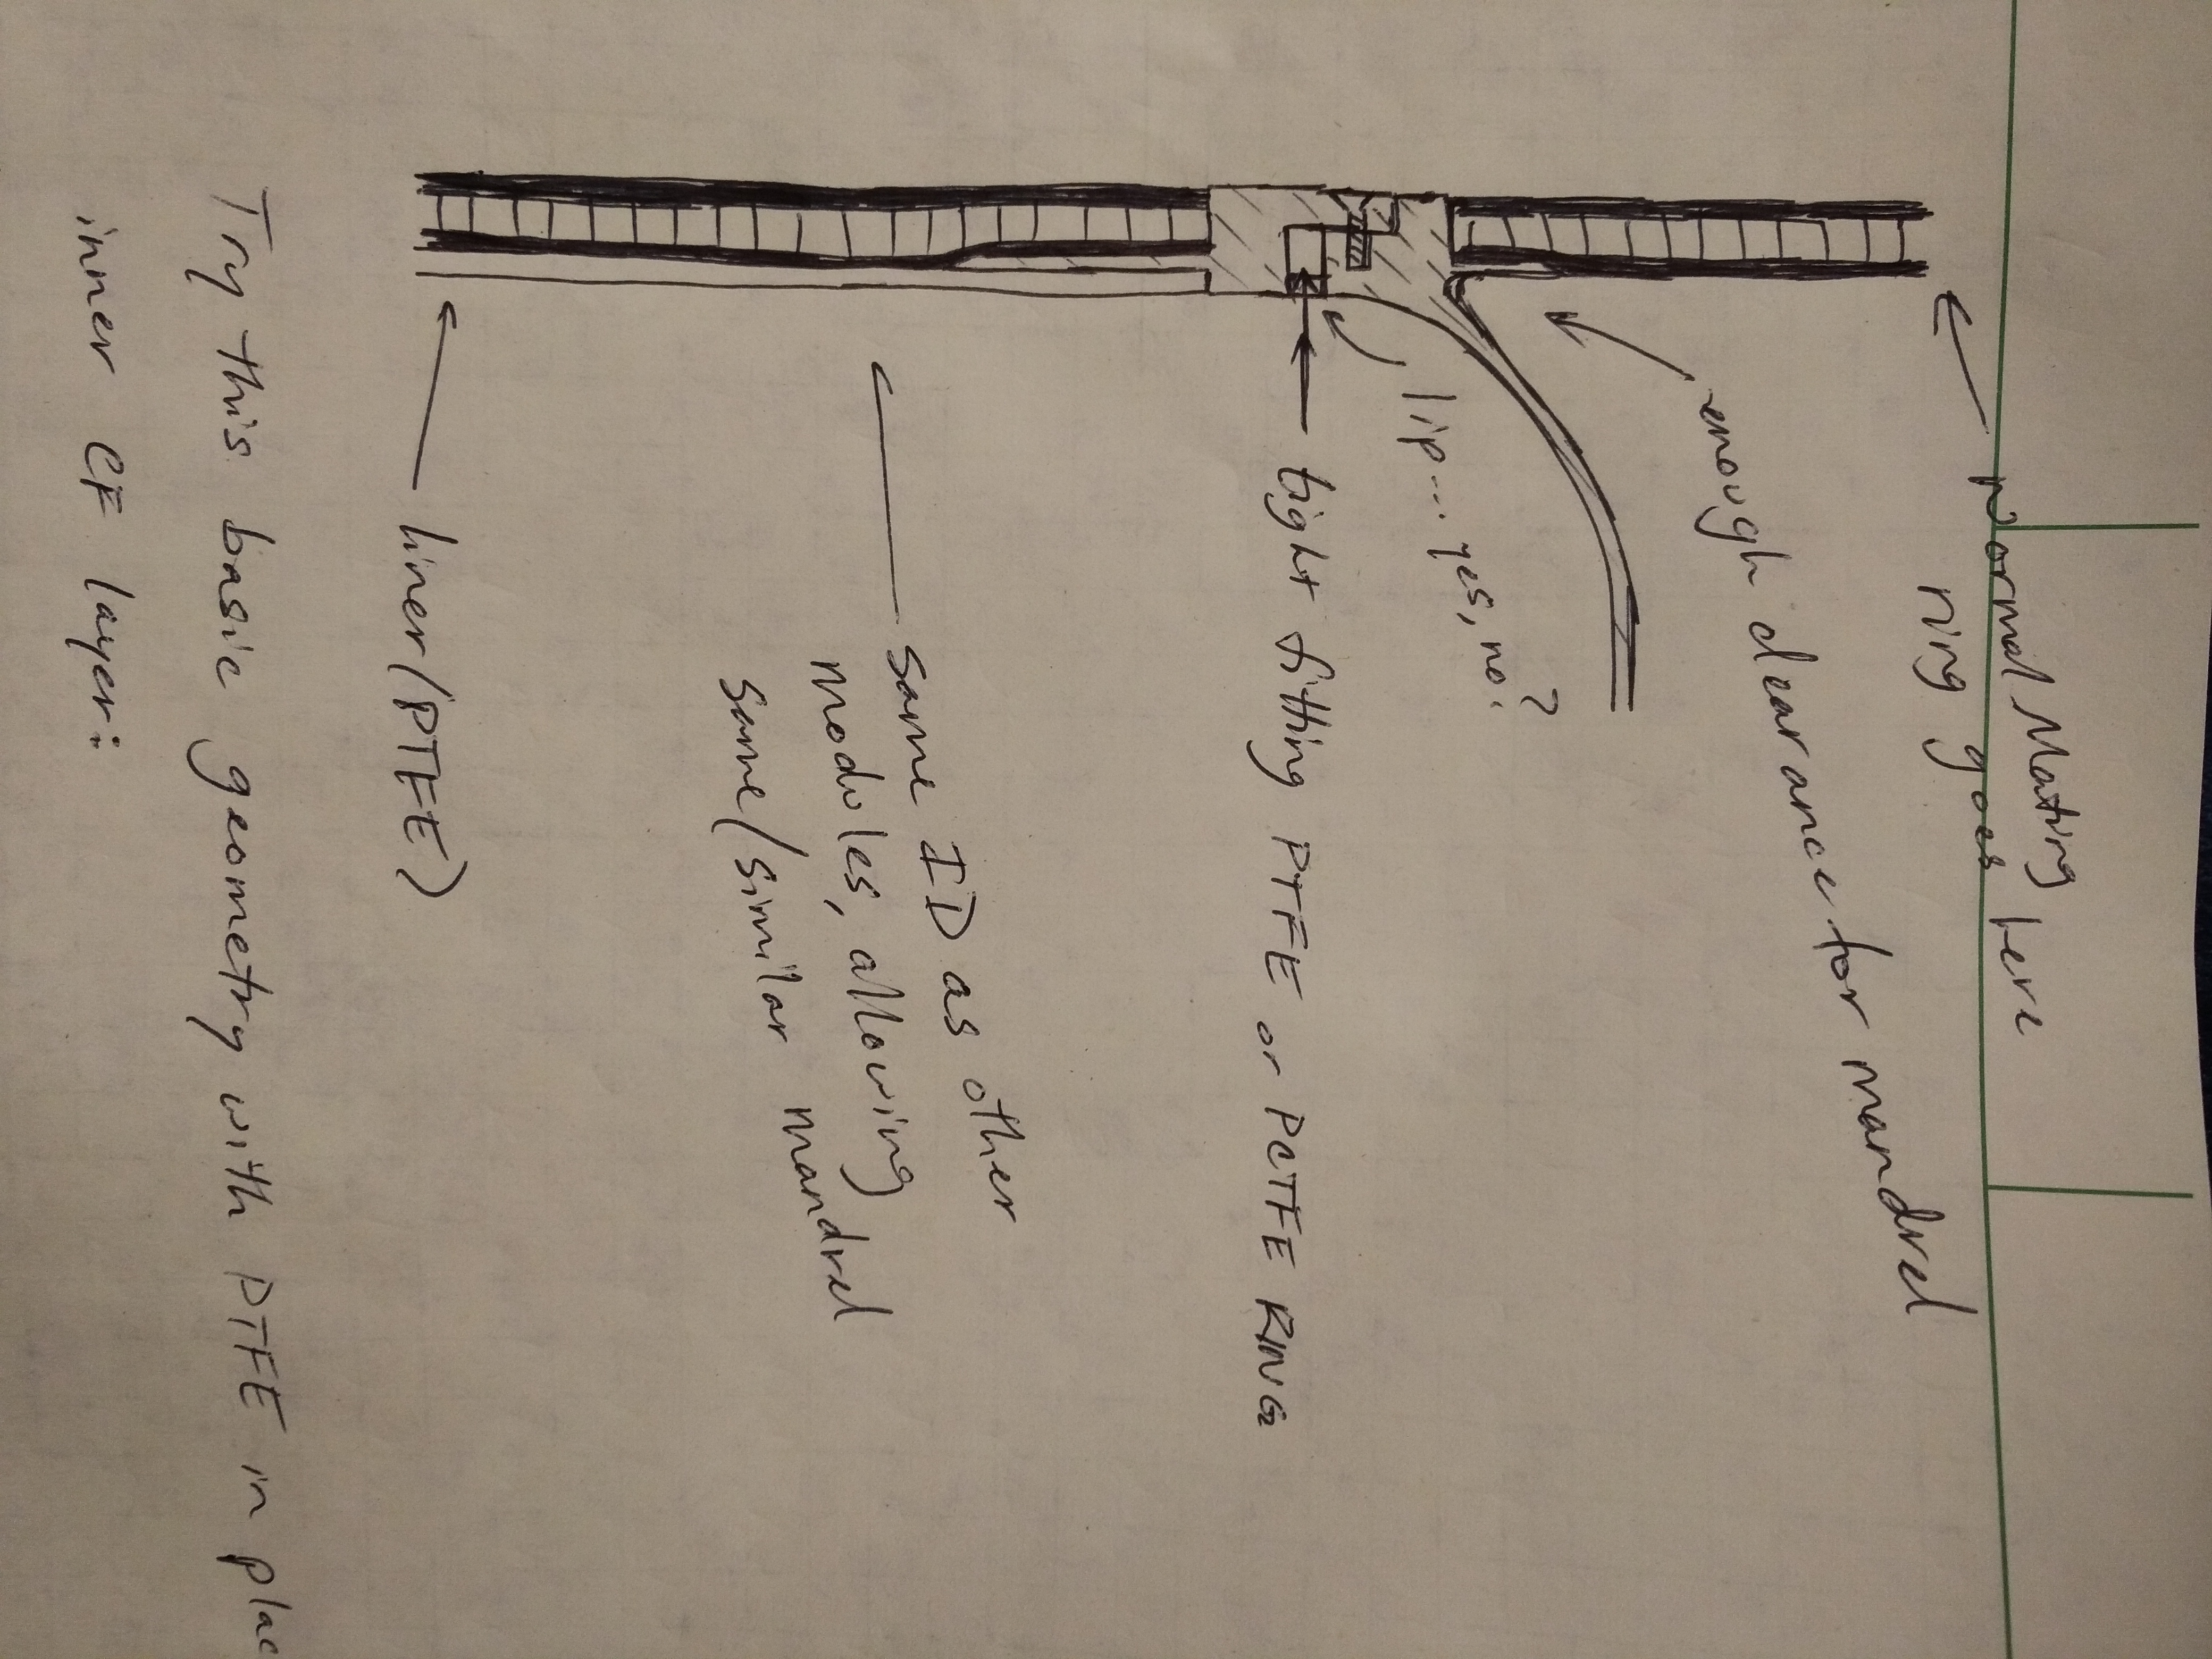 normal Mating
ring goes here
enough clearance for mandrel
lip... yes, no?
tight fitting PTFE or PCTFE RING
same ID as other
modules, allowing
same/similar mandrel
liner/PTFE)
Try this basic geometry with PTFE in plac
inner CF layer: